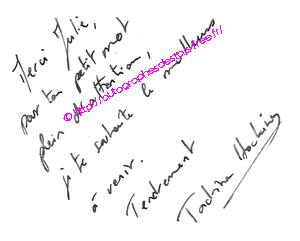 Merci Julie,
pour ton petit mot
plein d'attention,
je te souhaite le meilleur
à venir.
Tendrement
© http://autographesdestbb.free.fr/